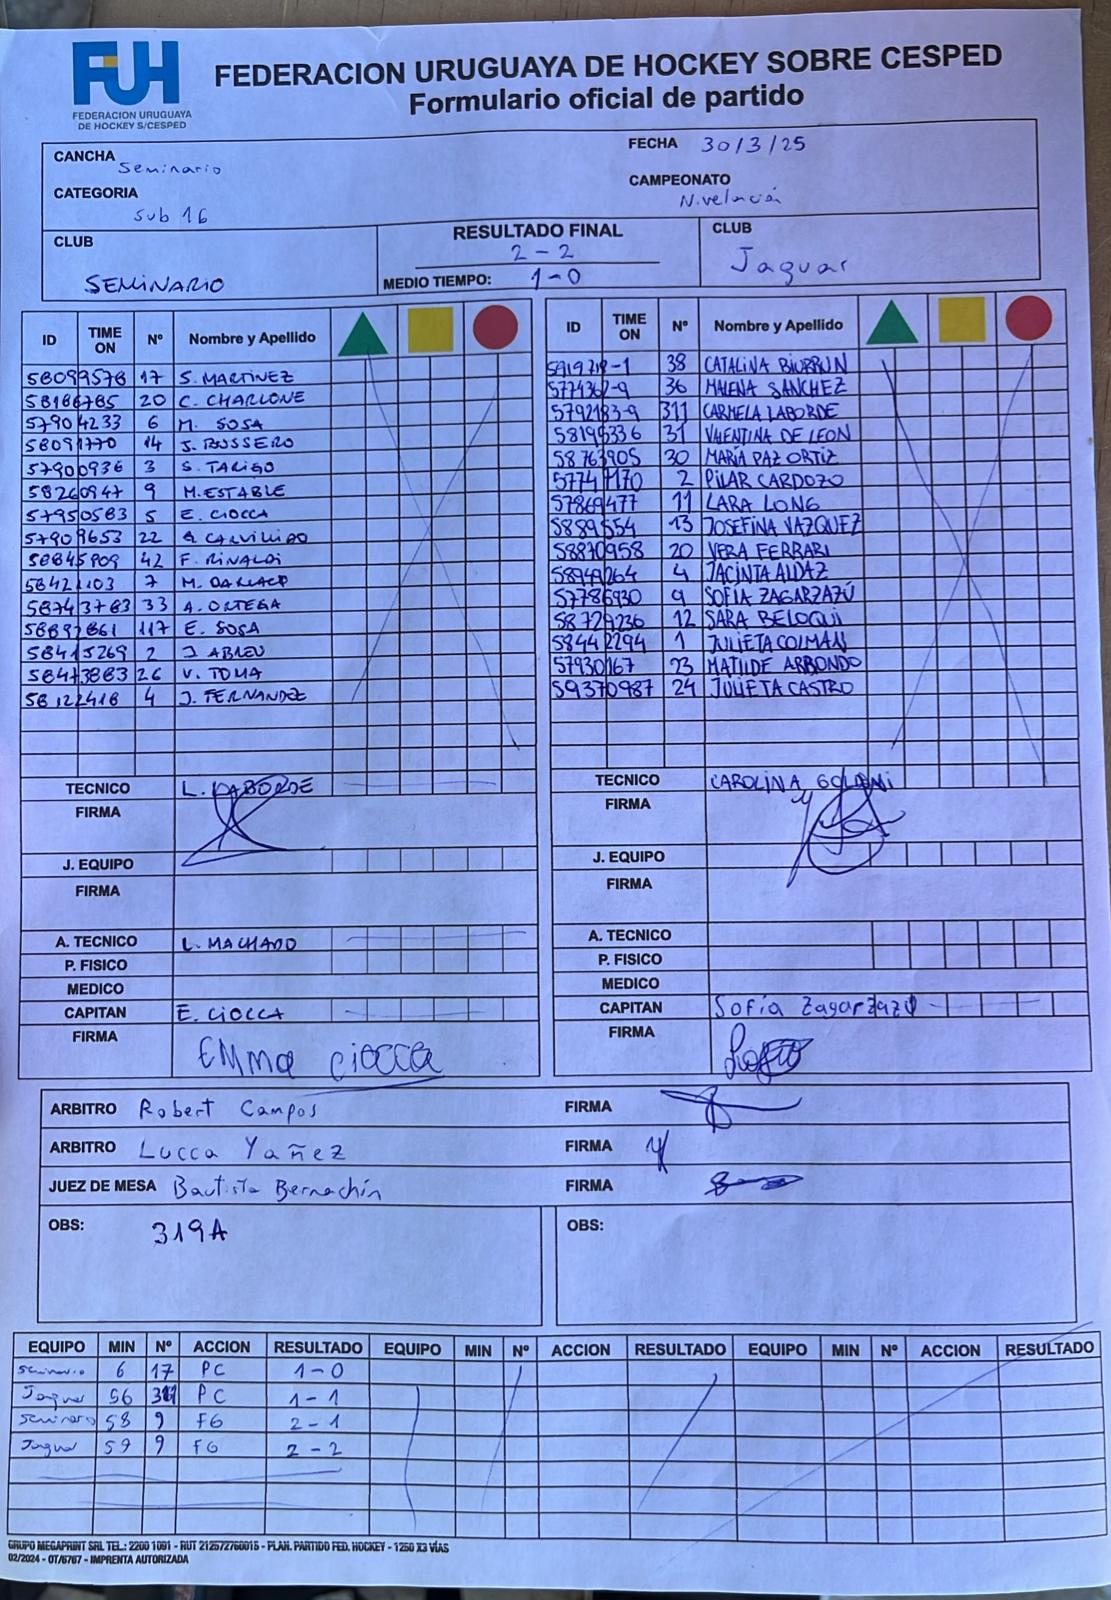 FUH
FEDERACION URUGUAYA
DE HOCKEY S/CESPED
FEDERACION URUGUAYA DE HOCKEY SOBRE CESPED
Formulario oficial de partido
CANCHA Seminario
FECHA 30/3/25
CATEGORIA Sub 16
CAMPEONATO Nivelación
CLUB SEMINARIO
RESULTADO FINAL 2-2
MEDIO TIEMPO: 1-0
CLUB Jaguar
ID TIME ON Nº Nombre y Apellido
58099578 17 S. MARTINEZ
58186785 20 C. CHARLONE
57904233 6 M. SOSA
58091770 14 J. BOSSERO
57900936 3 S. TARIGO
58260947 9 M. ESTABLE
57950583 5 E. CIOCCA
57909653 22
58845909 42 F. RINALDI
58421103 7 M.
58743783 33 A. ORTEGA
58892861 117 E. SOSA
58415269 2 J. ABREU
58473883 26 V. TOMA
58122418 4 J. FERNANDEZ
TECNICO L. LABORDE
FIRMA
J. EQUIPO
FIRMA
A. TECNICO L. MACHADO
P. FISICO
MEDICO
CAPITAN E. CIOCCA
FIRMA EMMA CIOCCA
ID TIME ON Nº Nombre y Apellido
5919718-1 38 CATALINA BIURRUN
5774362-9 36 MALENA SANCHEZ
5792183-9 311 CARMELA LABORDE
58195336 31 VALENTINA DE LEON
58763905 30 MARÍA PAZ ORTIZ
57741170 2 PILAR CARDOZO
57869477 11 LARA LONG
5889554 13 JOSEFINA VAZQUEZ
58870958 20 VERA FERRARI
58949264 4 JACINTA ALDAZ
57786930 9 SOFÍA ZAGARZAZÚ
58729236 12 SARA BELOQUI
58442294 1 JULIETA COLMAN
57930167 23 MATILDE ARRONDO
59370987 24 JULIETA CASTRO
TECNICO CAROLINA
FIRMA
J. EQUIPO
FIRMA
A. TECNICO
P. FISICO
MEDICO
CAPITAN Sofía Zagarzazú
FIRMA
ARBITRO Robert Campos FIRMA
ARBITRO Lucca Yañez FIRMA
JUEZ DE MESA Bautista Bernachín FIRMA
OBS: 319A
OBS:
EQUIPO MIN Nº ACCION RESULTADO EQUIPO MIN Nº ACCION RESULTADO EQUIPO MIN Nº ACCION RESULTADO
Seminario 6 17 PC 1-0
Jaguar 56 311 PC 1-1
Seminario 58 9 FG 2-1
Jaguar 59 9 FG 2-2
GRUPO MEGAPRINT SRL TEL.: 2200 1091 - RUT 212572760015 - PLAN. PARTIDO FED. HOCKEY - 1250 X3 VÍAS
02/2024 - OT/6767 - IMPRENTA AUTORIZADA